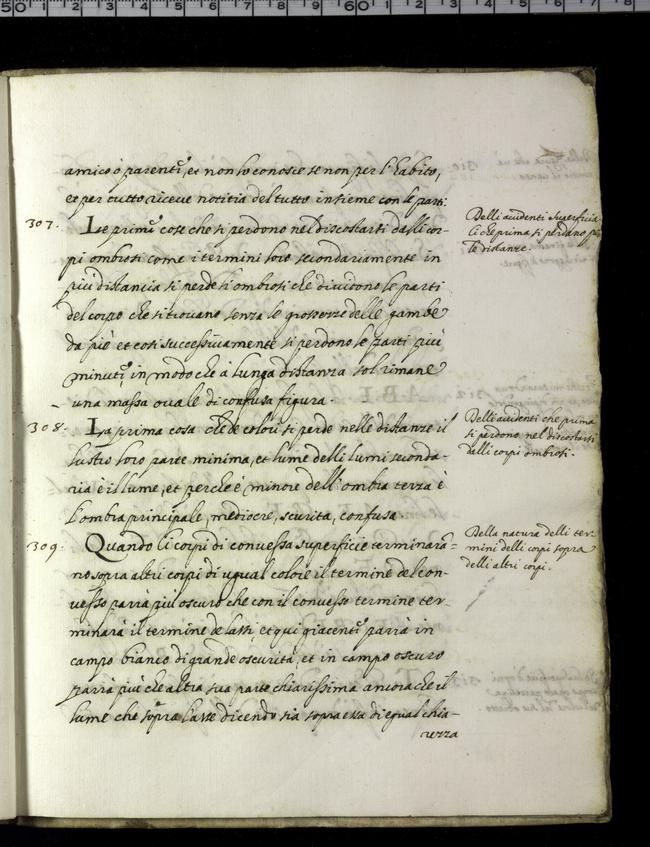 amico ò parenti, et non lo conosce se non per l'habito,
et per tutto riceve notitia del tutto insieme con le parti.
307. Le prime cose che si perdono nel discostarsi dalli cor-
pi ombrosi come i termini loro secondariamente in
più distancia si perde li ombrosi che dividono le parti
del corpo che si trovano senza le grossezze delle gambe
da piè et cosi successivamente si perdono le parti più
minuti, in modo che à lunga distanza sol rimane
una massa ovale di confusa figura.
308. La prima cosa che de colori si perde nelle distanze è il
lustro loro parte minima, et lume delli lumi seconda-
ria è il lume, et perche è minore dell'ombra terza è
l'ombra principale, mediocre, scurità, confusa
309. Quando li corpi di convessa superficie terminara-
no sopra altri corpi di ugual colore il termine del con-
vesso parrà più oscuro che con il convesso termine ter-
minarà il termine de l'asti et qui giacenti parrà in
campo bianco di grande oscurità, et in campo oscuro
parrà più che altra sua parte chiarissima ancora che il
lume che sopra l'asse dicendo sia sopra essa di egual chia-
rezza
Delli acidenti superficia-
li che prima si perdano per
le distanze.
Delli acidenti che prima
si perdono nel discostarsi
dalli corpi ombrosi.
Della natura delli ter-
mini delli corpi sopra
delli altri corpi.